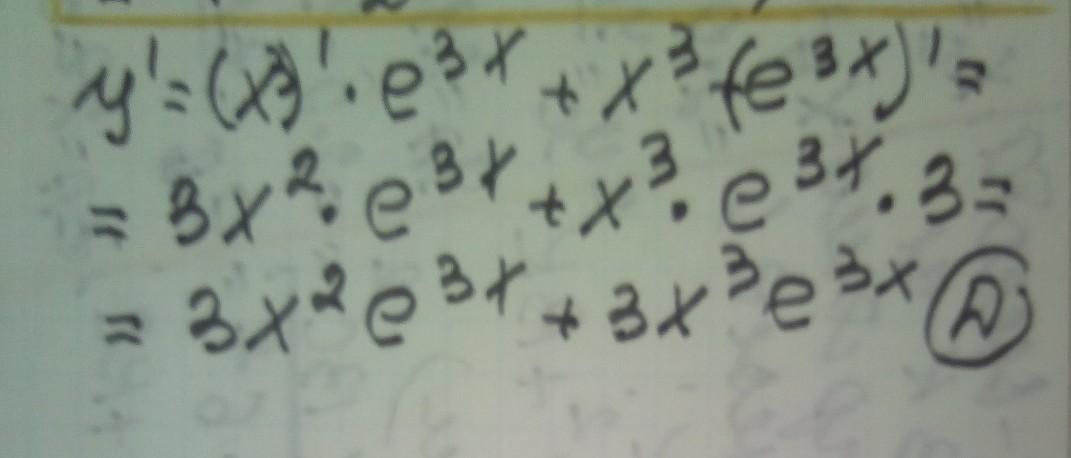 y' = (x³)' · e³ˣ + x³ · (e³ˣ)' =
= 3x² · e³ˣ + x³ · e³ˣ · 3 =
= 3x²e³ˣ + 3x³e³ˣ Д